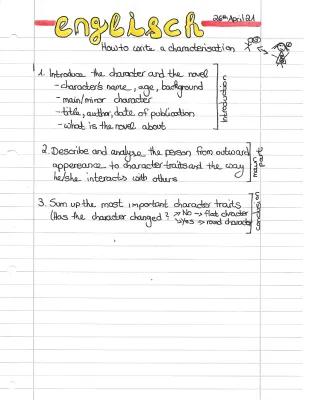 englisch
26th April 21
How to write a characterisation
1. Introduce the character and the novel
- character's name, age, background
- main/minor character
- title, author, date of publication
- what is the novel about
Introduction
2. Describe and analyse the person from outward
appereance to character traits and the way
he/she interacts with others
main part
3. Sum up the most important character traits
(Has the character changed? ⇒ No → flat character
⇒ Yes → round character
conclusion